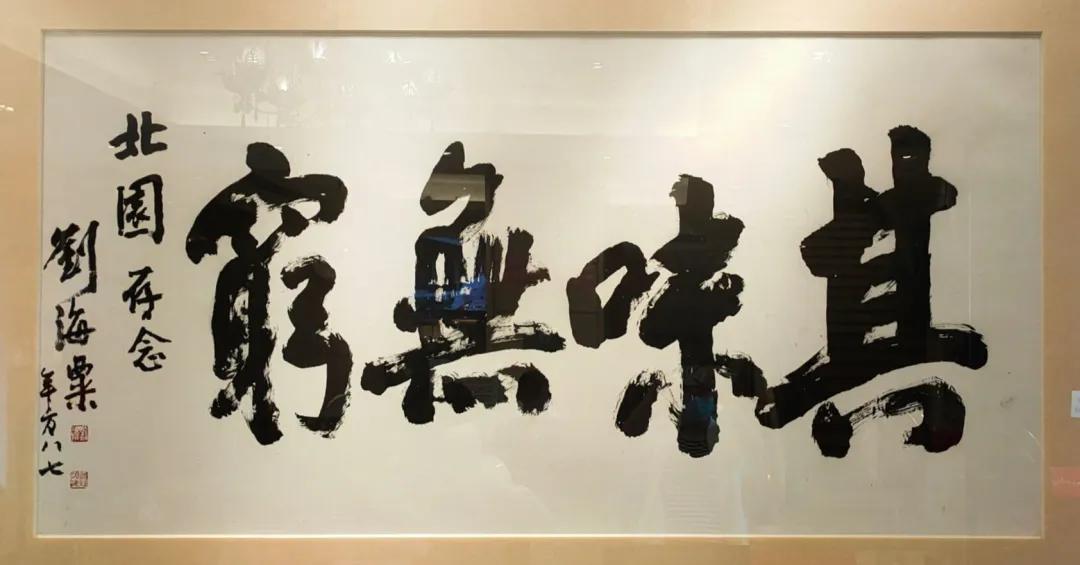 其味無窮
北園存念
劉海粟
年方八七